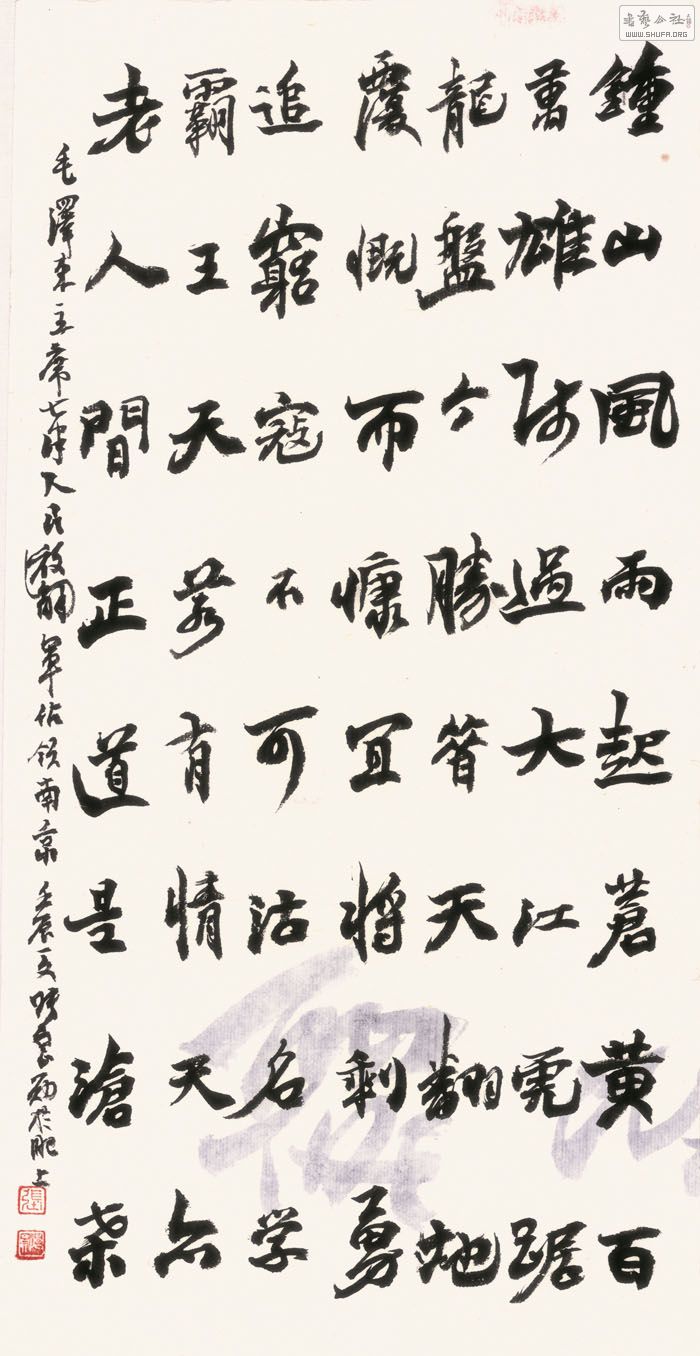 鍾山風雨起蒼黄百
萬雄师過大江虎踞
龍盤今勝昔天翻地
覆慨而慷宜將剩勇
追窮寇不可沽名学
霸王天若有情天亦
老人間正道是滄桒
毛澤東主席七律人民放解軍佔領南京 壬辰夏於肥上
張
書藝公社
WWW.SHUFA.ORG